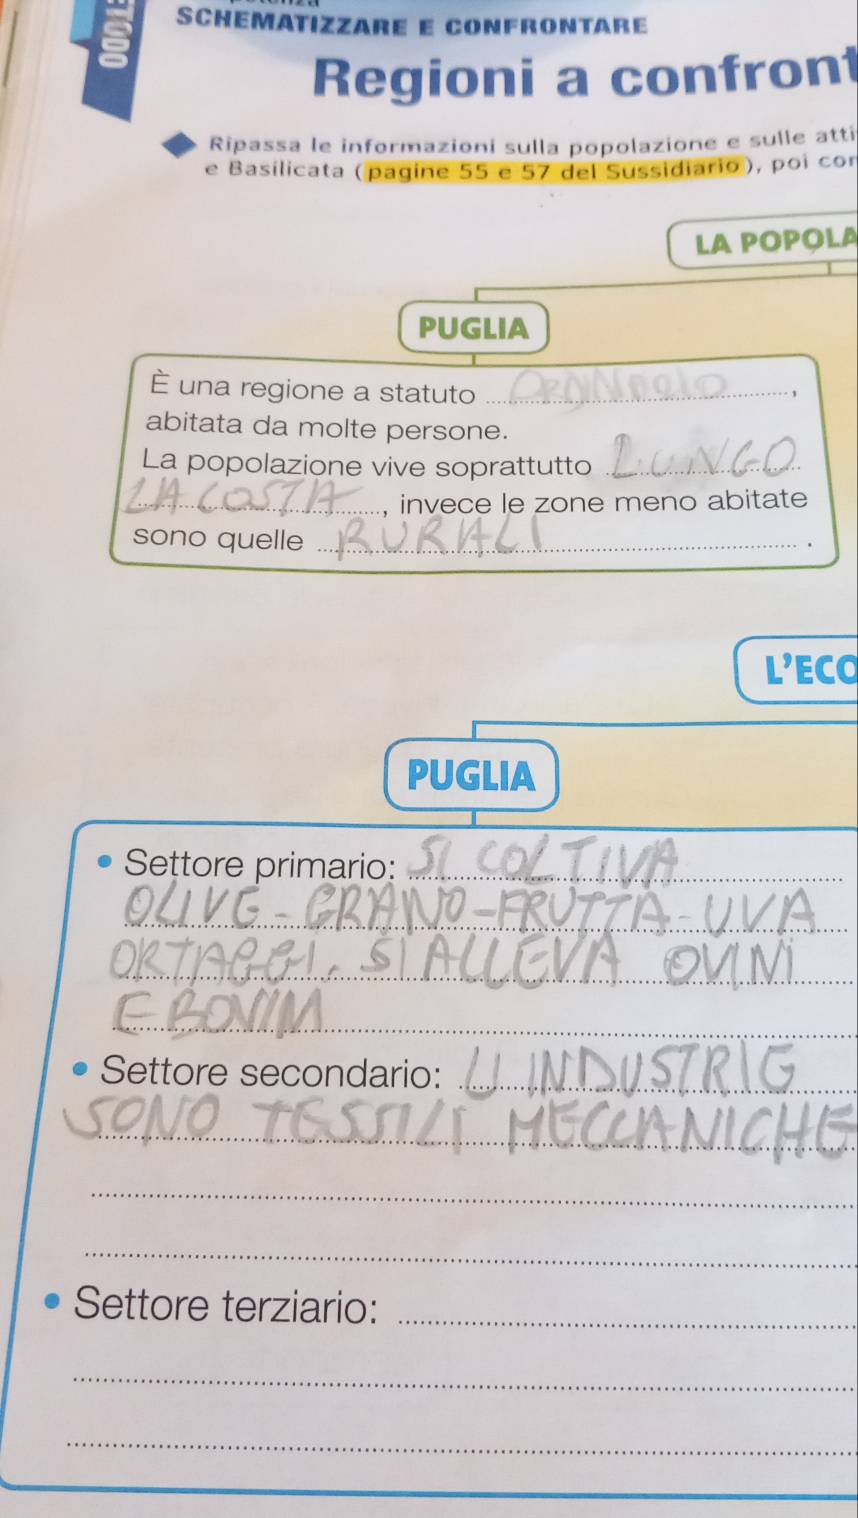 SCHEMATIZZARE E CONFRONTARE
Regioni a confront
Ripassa le informazioni sulla popolazione e sulle atti
e Basilicata (pagine 55 e 57 del Sussidiario), poi con
LA POPOLA
PUGLIA
È una regione a statuto ,
abitata da molte persone.
La popolazione vive soprattutto LUNGO
LA COSTA, invece le zone meno abitate
sono quelle RURALI.
L'ECO
PUGLIA
• Settore primario: SI COLTIVA
OLIVE - GRANO - FRUTTA - UVA
ORTAGGI, SI ALLEVA OVINI
E BOVINI
• Settore secondario: LI INDUSTRIE
SONO TESSILI MECCANICHE
• Settore terziario: